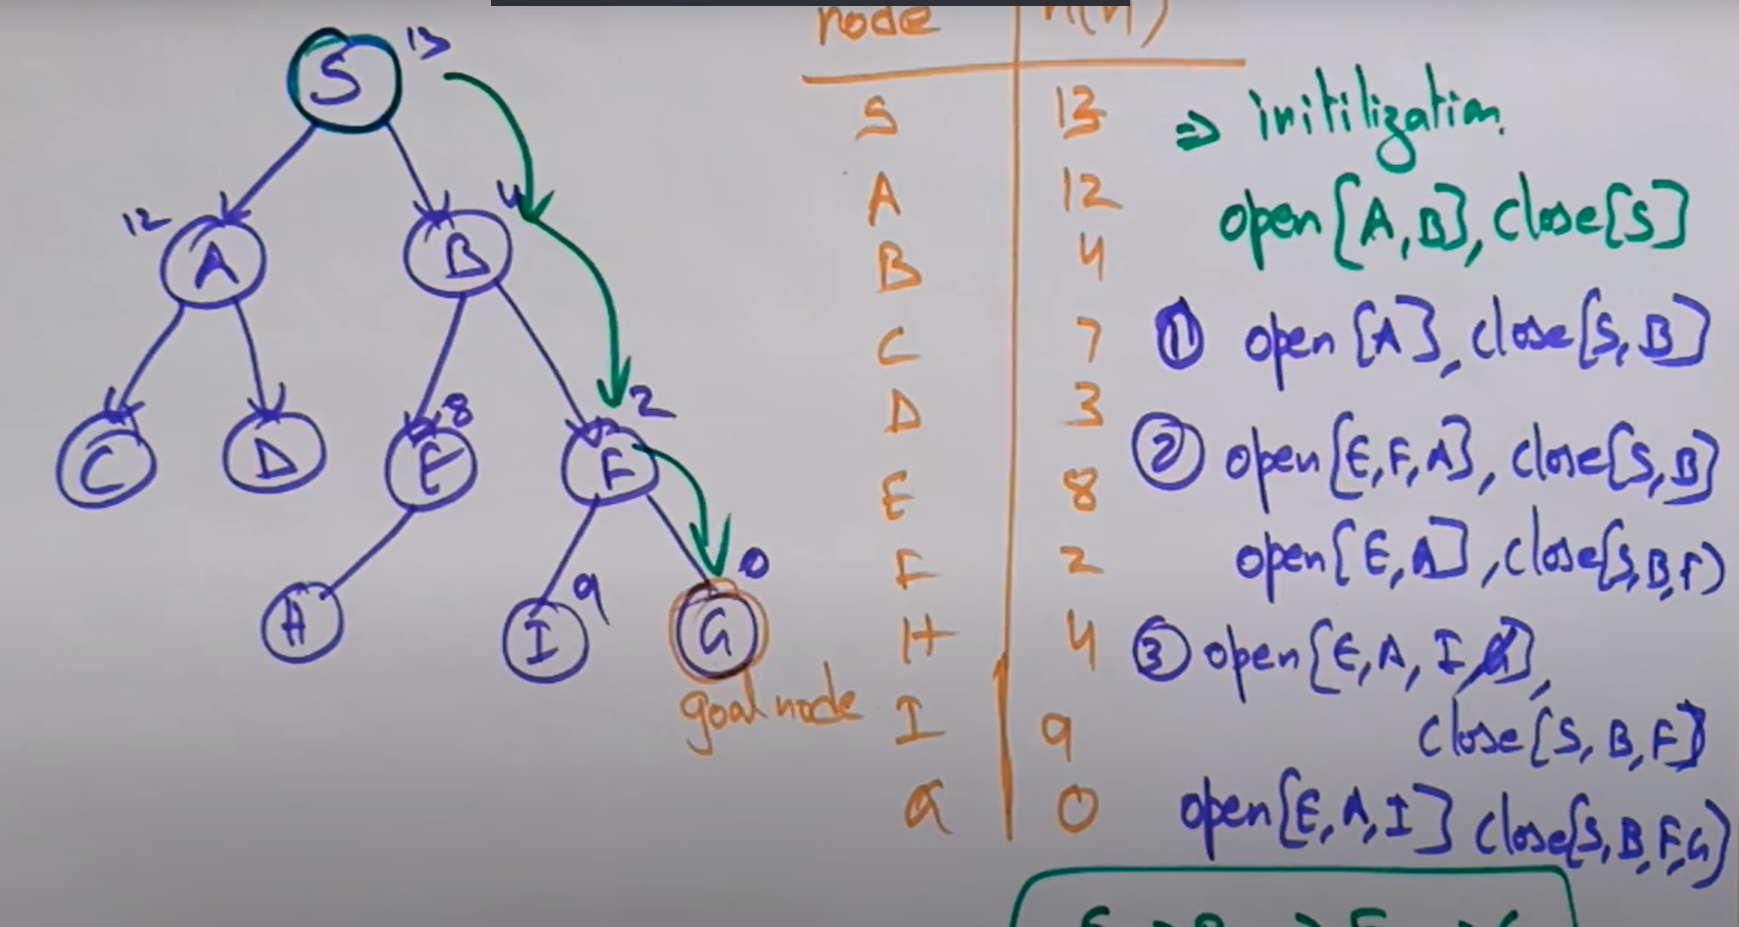 S 13
12 A B 4
C D E 8 F 2
H I 9 G 0
goal node
node h(n)
S 13
A 12
B 4
C 7
D 3
E 8
F 2
H 4
I 9
G 0
⇒ initilization.
open[A,B], close[S]
① open[A], close[S,B]
② open[E,F,A], close[S,B]
open[E,A], close(S,B,F)
③ open[E,A,I,G],
close[S,B,F]
open[E,A,I] close[S,B,F,G)